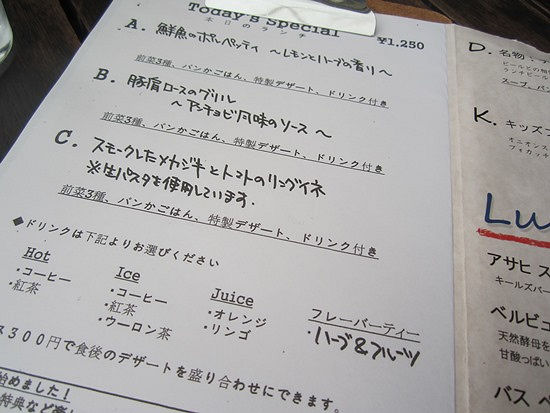 Today's Special
本日のランチ
¥1,250
A. 鮮魚のポルペッティ ～レモンとハーブの香り～
前菜3種、パンかごはん、特製デザート、ドリンク付き
B. 豚肩ロースのグリル
～アンチョビ風味のソース～
前菜3種、パンかごはん、特製デザート、ドリンク付き
C. スモークしたメカジキとトマトのリングイネ
※生パスタを使用しています。
前菜3種、パンかごはん、特製デザート、ドリンク付き
◆ドリンクは下記よりお選びください
Hot
・コーヒー
・紅茶
Ice
・コーヒー
・紅茶
・ウーロン茶
Juice
・オレンジ
・リンゴ
フレーバーティー
・ハーブ&フルーツ
ス300円で食後のデザートを盛り合わせにできます。
始めました！
特典など
D. 名物
ビールとの相
ランチビール
スープ、パン
K. キッズ
オニオンス
フォカッチ
Lu
アサヒ ス
キールズバー
ベルビュ
天然酵母を
甘酸っぱい
バス ペ